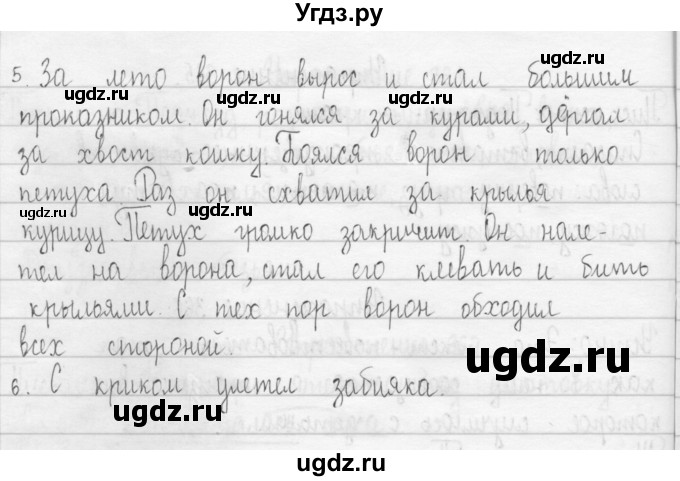 Угдз.ру
5. За лето ворон вырос и стал большим
проказником. Он гонялся за курами, дёргал
за хвост кошку. Боялся ворон только
петуха. Раз он схватил за крылья
курицу. Петух громко закричит. Он нале-
тел на ворона, стал его клевать и бить
крыльями. С тех пор ворон обходил
всех стороной.
6. С криком улетел забияка.
ugdz.ru
ugdz.ru
ugdz.ru
ugdz.ru
ugdz.ru
ugdz.ru
ugdz.ru
ugdz.ru
ugdz.ru
ugdz.ru
ugdz.ru
ugdz.ru